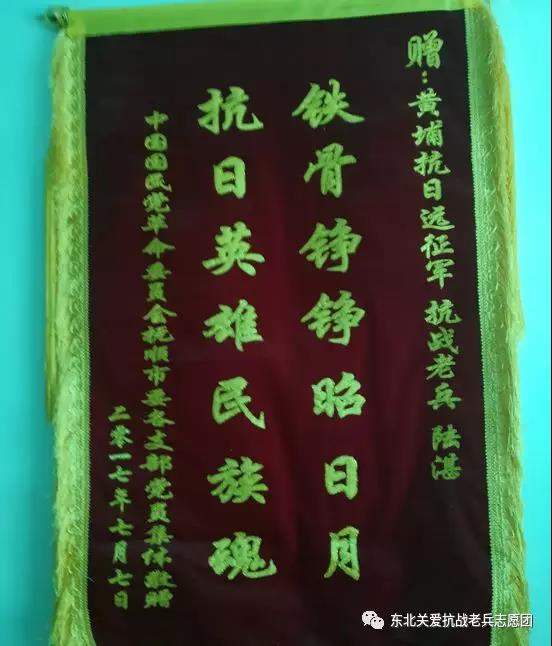 赠:黄埔抗日远征军 抗战老兵 陆湛
铁骨铮铮昭日月
抗日英雄民族魂
中国国民党革命委员会抚顺市委各支部党员集体敬赠
二零一七年七月七日
东北关爱抗战老兵志愿团